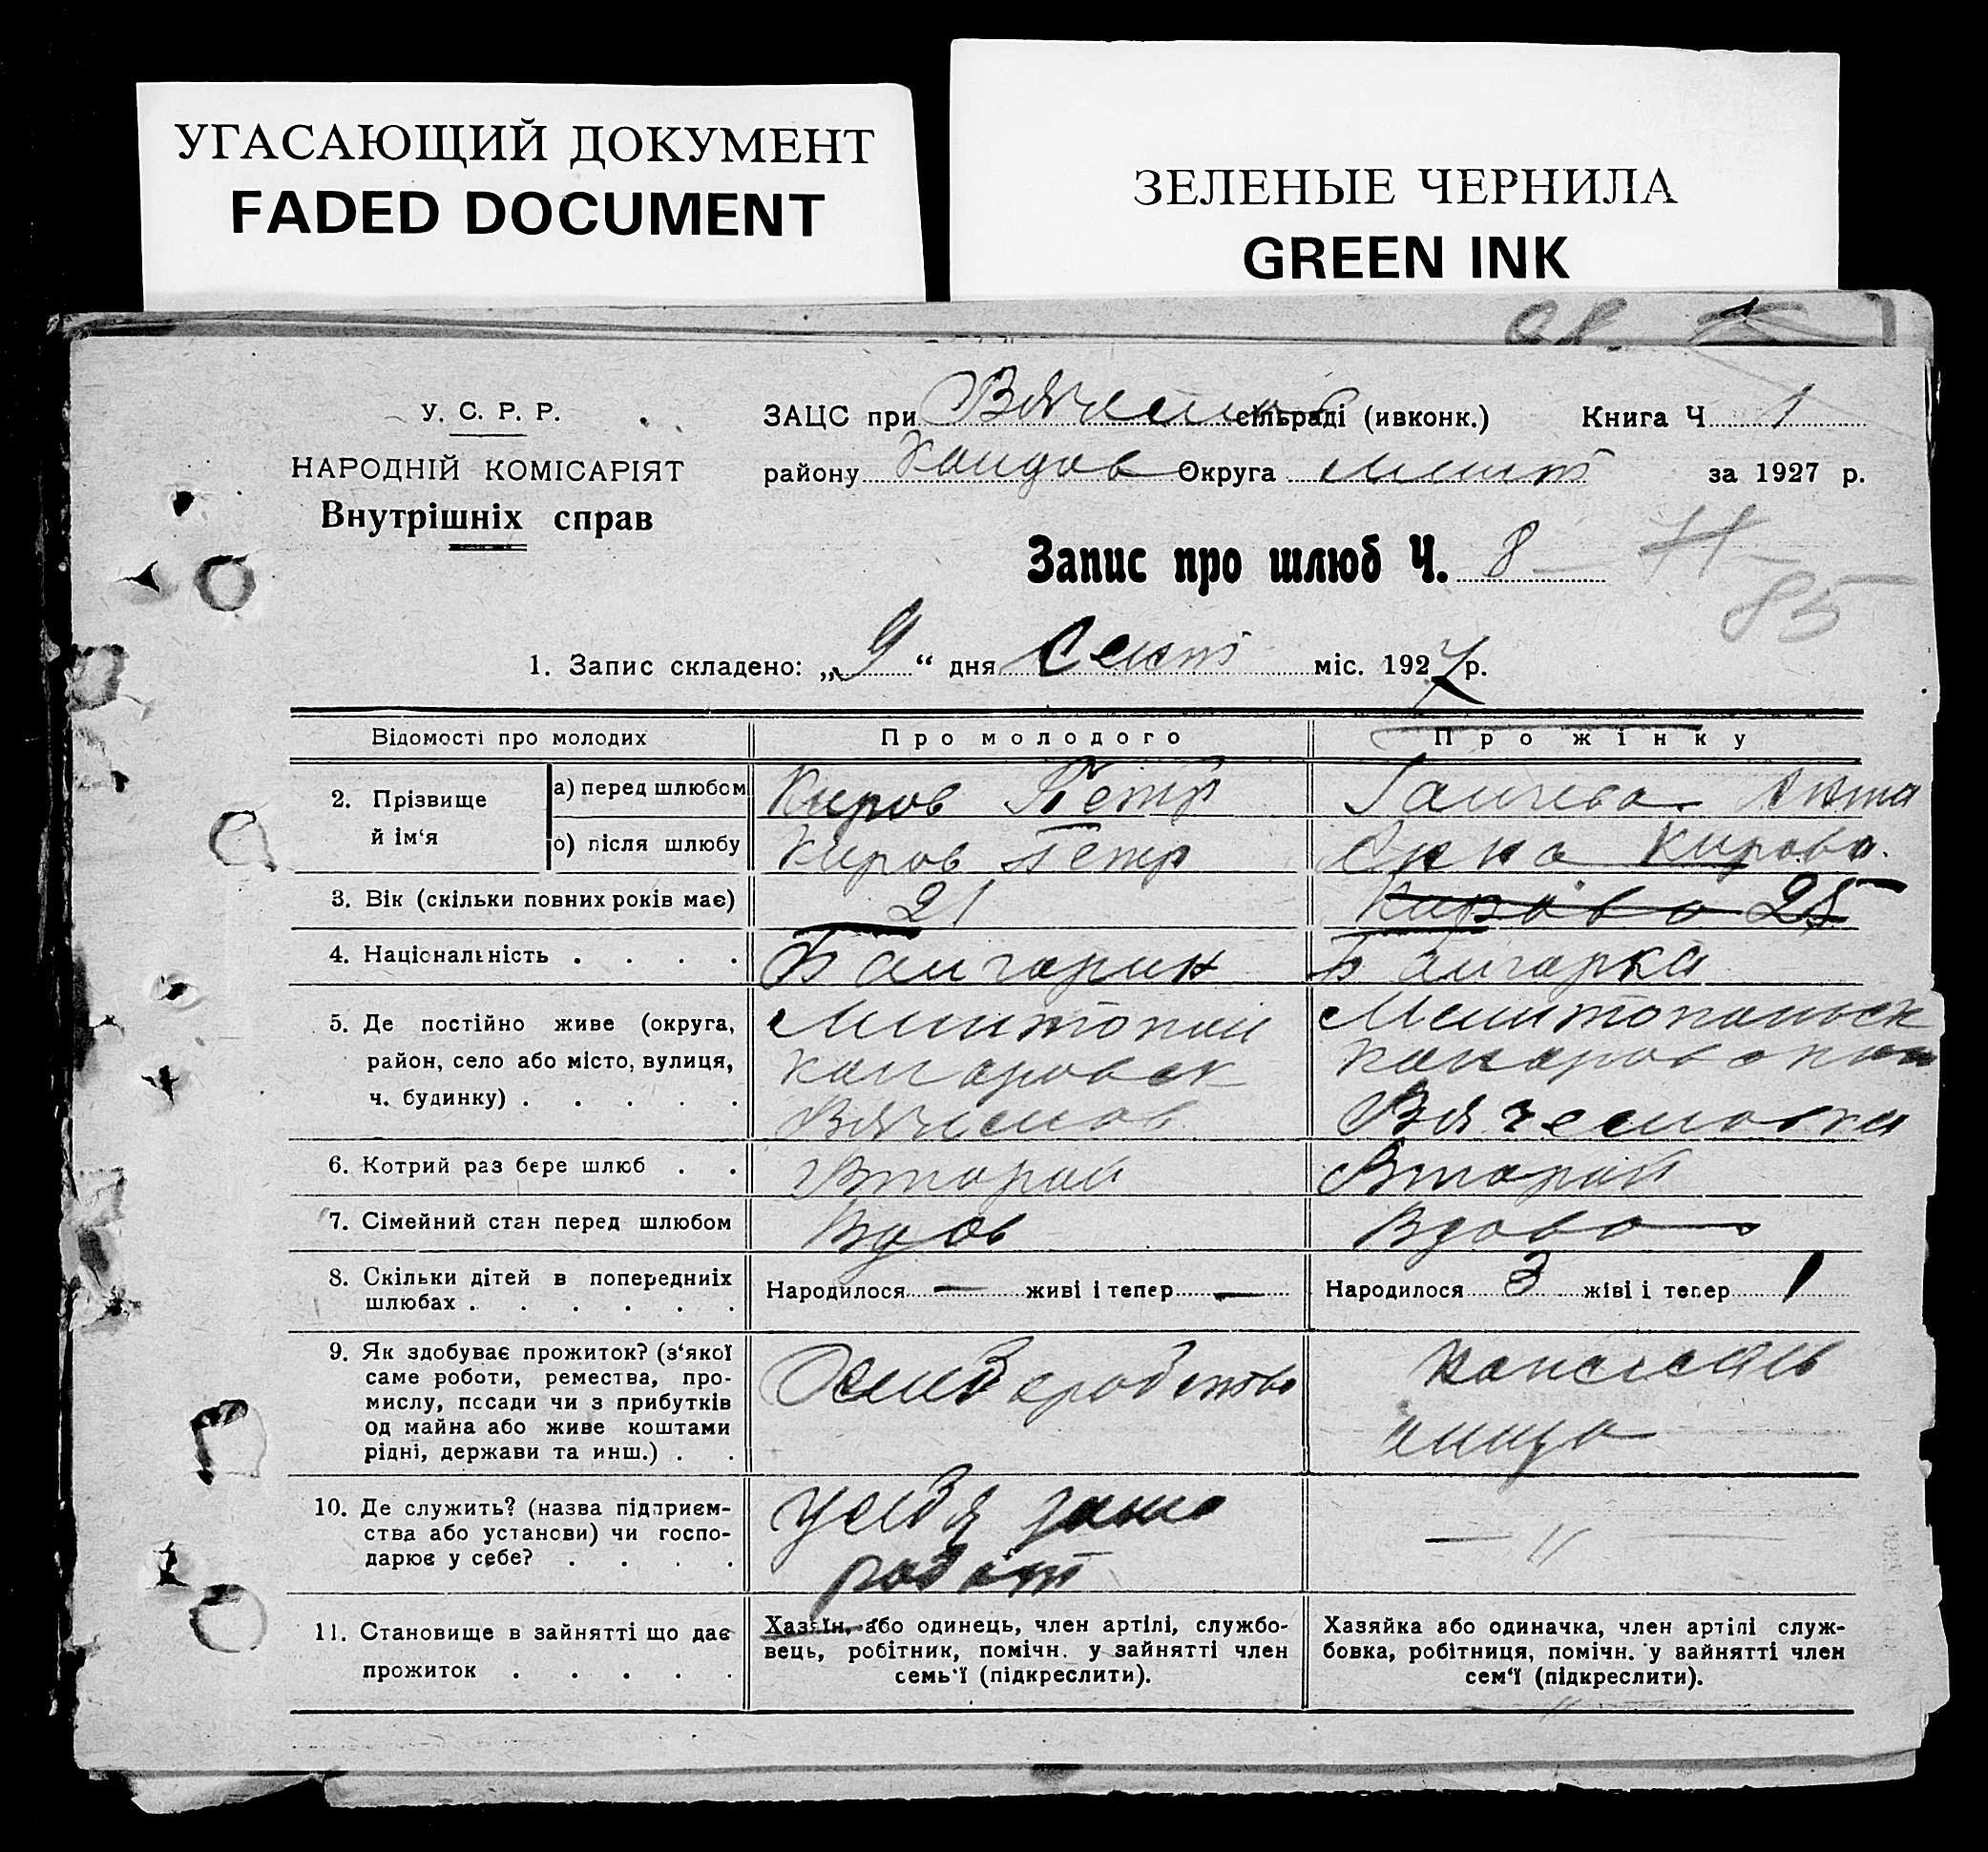 УГАСАЮЩИЙ ДОКУМЕНТ
FADED DOCUMENT
ЗЕЛЕНЫЕ ЧЕРНИЛА
GREEN INK
У. С. Р. Р.
НАРОДНІЙ КОМІСАРІЯТ
Внутрішніх справ
ЗАЦС при сільраді (ивконк.) Книга Ч 1
району Округа Мелит за 1927 р.
Запис про шлюб Ч. 8
71
85
1. Запис складено: „9“ дня Сент міс. 1927 р.
Відомості про молодих
Про молодого
Про жінку
2. Прізвище й ім‘я
а) перед шлюбом
Киров Петр
Ганчева Анна
б) після шлюбу
Киров Петр
Анна Кирова
3. Вік (скільки повних років має)
21
Кирова 25
4. Національність . . . .
Балгарин
Балгарка
5. Де постійно живе (округа,
район, село або місто, вулиця,
ч. будинку) . . . . .
Мелитопол
Коларовск
Вячеслов
Мелитопольск
Вячеславка
6. Котрий раз бере шлюб . .
Второй
Второй
7. Сімейний стан перед шлюбом
Вдов
Вдова
8. Скільки дітей в попередниіх
шлюбах . . . . . .
Народилося — живі і тепер —
Народилося 3 жіві і тепер 1
9. Як здобуває прожиток? (з‘якої
саме роботи, ремества, про-
мислу, посади чи з прибутків
од майна або живе коштами
рідні, держави та инш.) . .
10. Де служить? (назва підприєм-
ства або установи) чи госпо-
дарює у себе? . . . .
у себя
— „ —
11. Становище в зайнятті що дає
прожиток . . . . .
Хазяїн, або одинець, член артілі, службо-
вець, робітник, помічн. у зайнятті член
семь‘ї (підкреслити).
Хазяйка або одиначка, член артілі служ-
бовка, робітниця, помічн. у зайнятті член
сем‘ї (підкреслити).